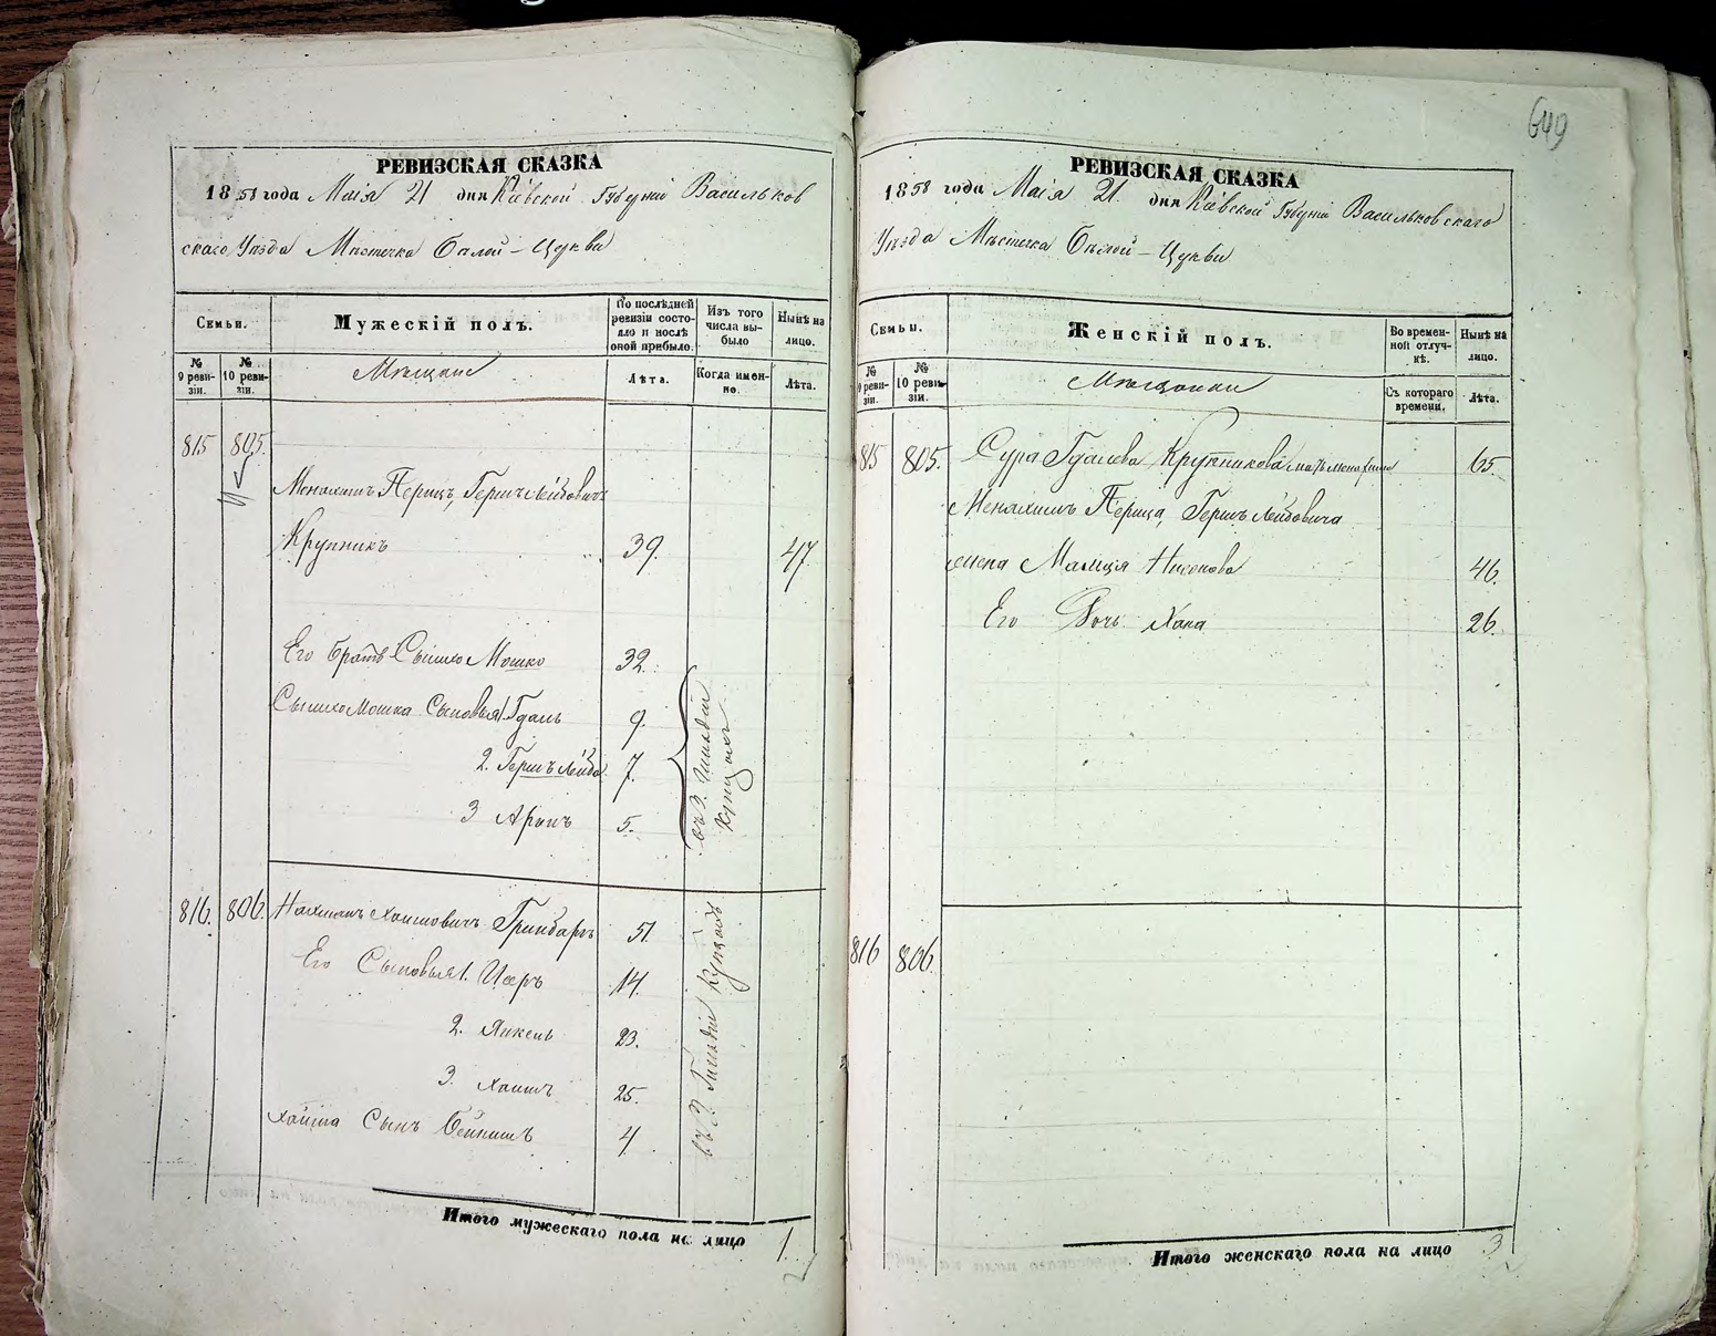 649
РЕВИЗСКАЯ СКАЗКА
1858 года Маія 21 дня Кіевской Губерніи Васильков
скаго Уѣзда Мѣстечка Бѣлой-Церкви
Семьи.
Мужескій полъ.
По послѣдней ревизіи состояло и послѣ оной прибыло.
Изъ того числа выбыло
Нынѣ на лицо.
№ 9 ревизіи.
№ 10 ревизіи.
Мѣщане
Лѣта.
Когда именно.
Лѣта.
815 805.
Менахимъ Перицъ, Гершъ Лейбовичъ
Крупникъ 39. 47.
Его братъ Сышко Мошко 32.
Сышко Мошка Сыновья 1. Гдаль 9.
2. Гершъ Лейба 7.
3 Аронъ 5.
въ 3. Гильдіи
816. 806. Нахманъ Хаимовичъ 51.
Его Сыновья 1. Исеръ 14.
2. Янкель 23.
3. Хаимъ 25.
Хаима Сынъ Бейнишъ 4
въ 3. Гильдіи Купцовъ
Итого мужескаго пола на лицо 1.
РЕВИЗСКАЯ СКАЗКА
1858 года Маія 21. дня Кіевской Губерніи Васильковскаго
Уѣзда Мѣстечка Бѣлой-Церкви
Семьи.
Женскій полъ.
Во временной отлучкѣ.
Нынѣ на лицо.
№ 9 ревизіи.
№ 10 ревизіи.
Мѣщанки
Съ котораго времени.
Лѣта.
815 805. Сура Гдалева Крупникова мать Менахима 65.
Менахимъ Перица, Гершъ Лейбовича
жена Малція 46.
Его Дочь Хана 26.
816 806.
Итого женскаго пола на лицо 3